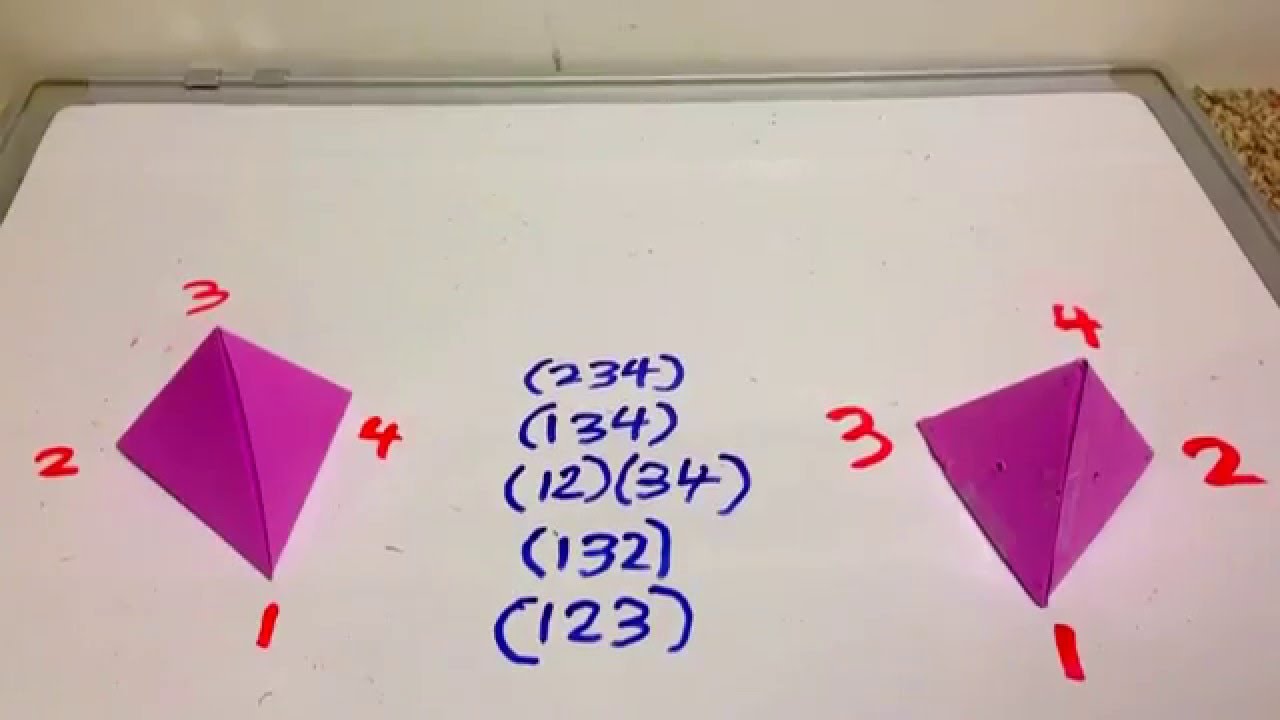 3
2
4
1
(234)
(134)
(12)(34)
(132)
(123)
4
3
2
1